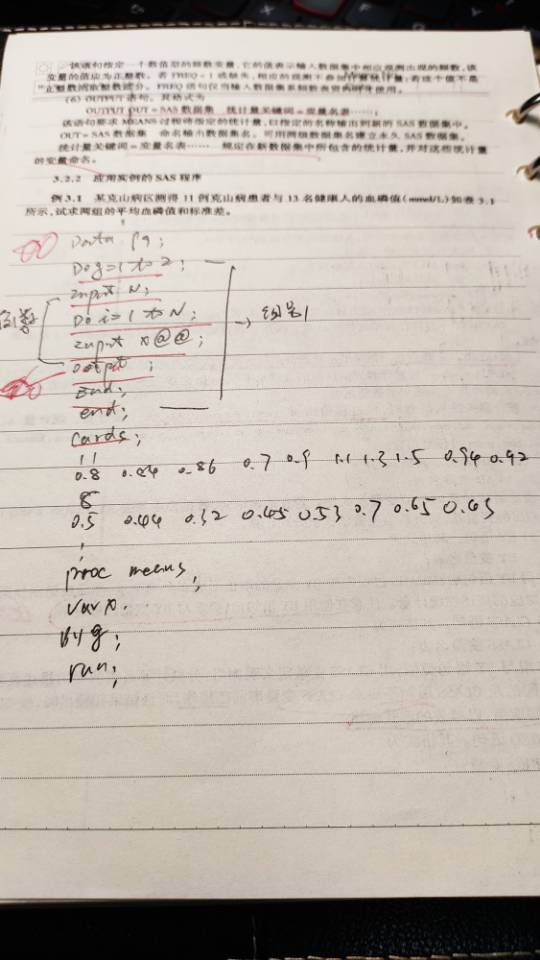 该语句指定一个数值型的频数变量，它的值表示输入数据集中相应观测出现的频数，该
变量的值应为正整数。若 FREQ＜1 或缺失，相应的观测不参加计算统计量；若这个值不是
正整数则取整数部分。FREQ 语句仅当输入数据集系频数表资料时才使用。
(6) OUTPUT 语句。其格式为
OUTPUT OUT = SAS 数据集 统计量关键词 = 变量名表……;
该语句要求 MEANS 过程将指定的统计量，以指定的名称输出到新的 SAS 数据集中。
OUT = SAS 数据集 命名输出数据集名。可用两级数据集名建立永久 SAS 数据集。
统计量关键词 = 变量名表…… 规定在新数据集中所包含的统计量，并对这些统计量
的变量命名。
3.2.2 应用实例的 SAS 程序
例 3.1 某克山病区测得 11 例克山病患者与 13 名健康人的血磷值(mmol/L)如表 3.1
所示，试求两组的平均血磷值和标准差。
Data pg;
Do g=1 to 2;
Input N;
Do i=1 to N;
Input x@@;
Output;
End;
end;
Cards;
→ 组别
11
0.8 0.84 0.86 0.7 0.9 1.1 1.3 1.5 0.94 0.92
8
0.5 0.44 0.32 0.45 0.53 0.7 0.65 0.43
;
proc means;
Var x;
by g;
run;